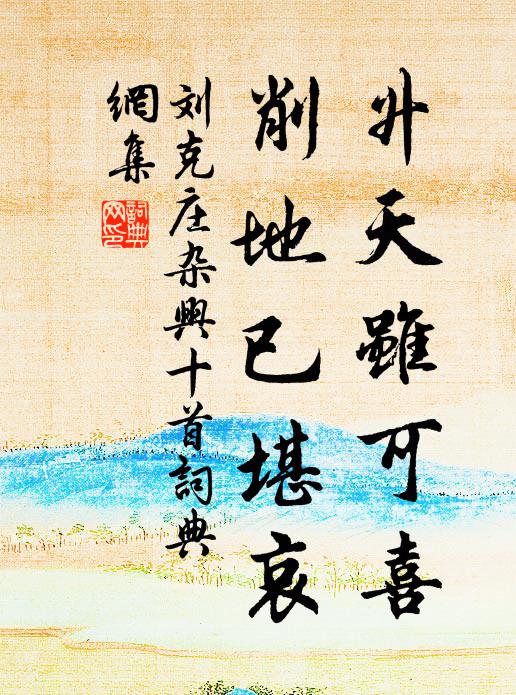 升天雖可喜
削地已堪哀
刘克庄杂興十首詞典
網集
詞典
网印